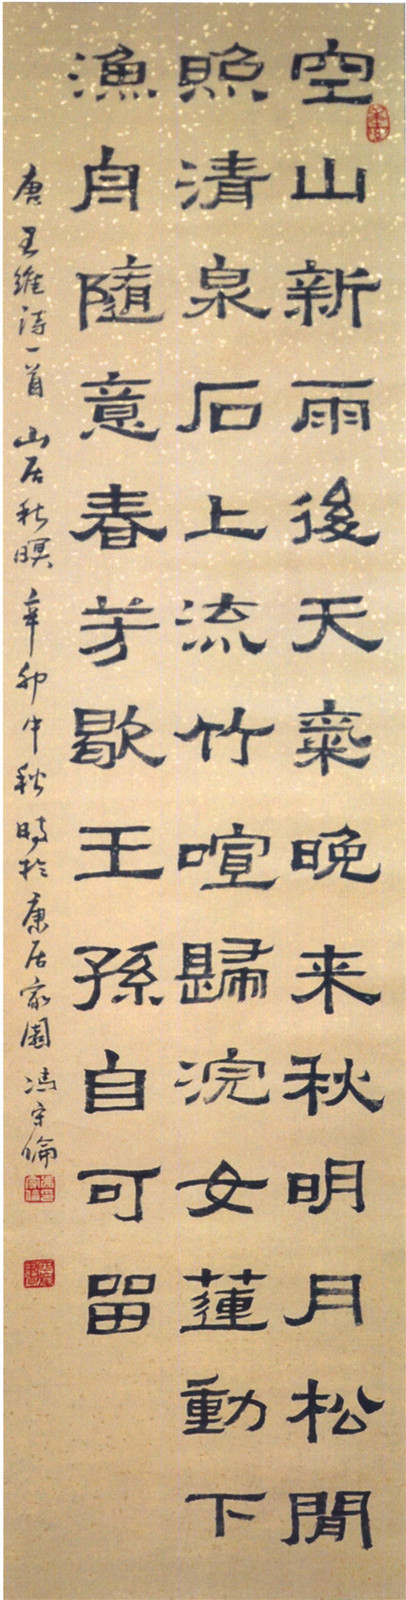 空山新雨後天氣晚来秋明月松間
照清泉石上流竹喧歸浣女蓮動下
漁舟隨意春芳歇王孫自可留
唐王維詩一首山居秋暝辛卯中秋時於康居家園馮守倫